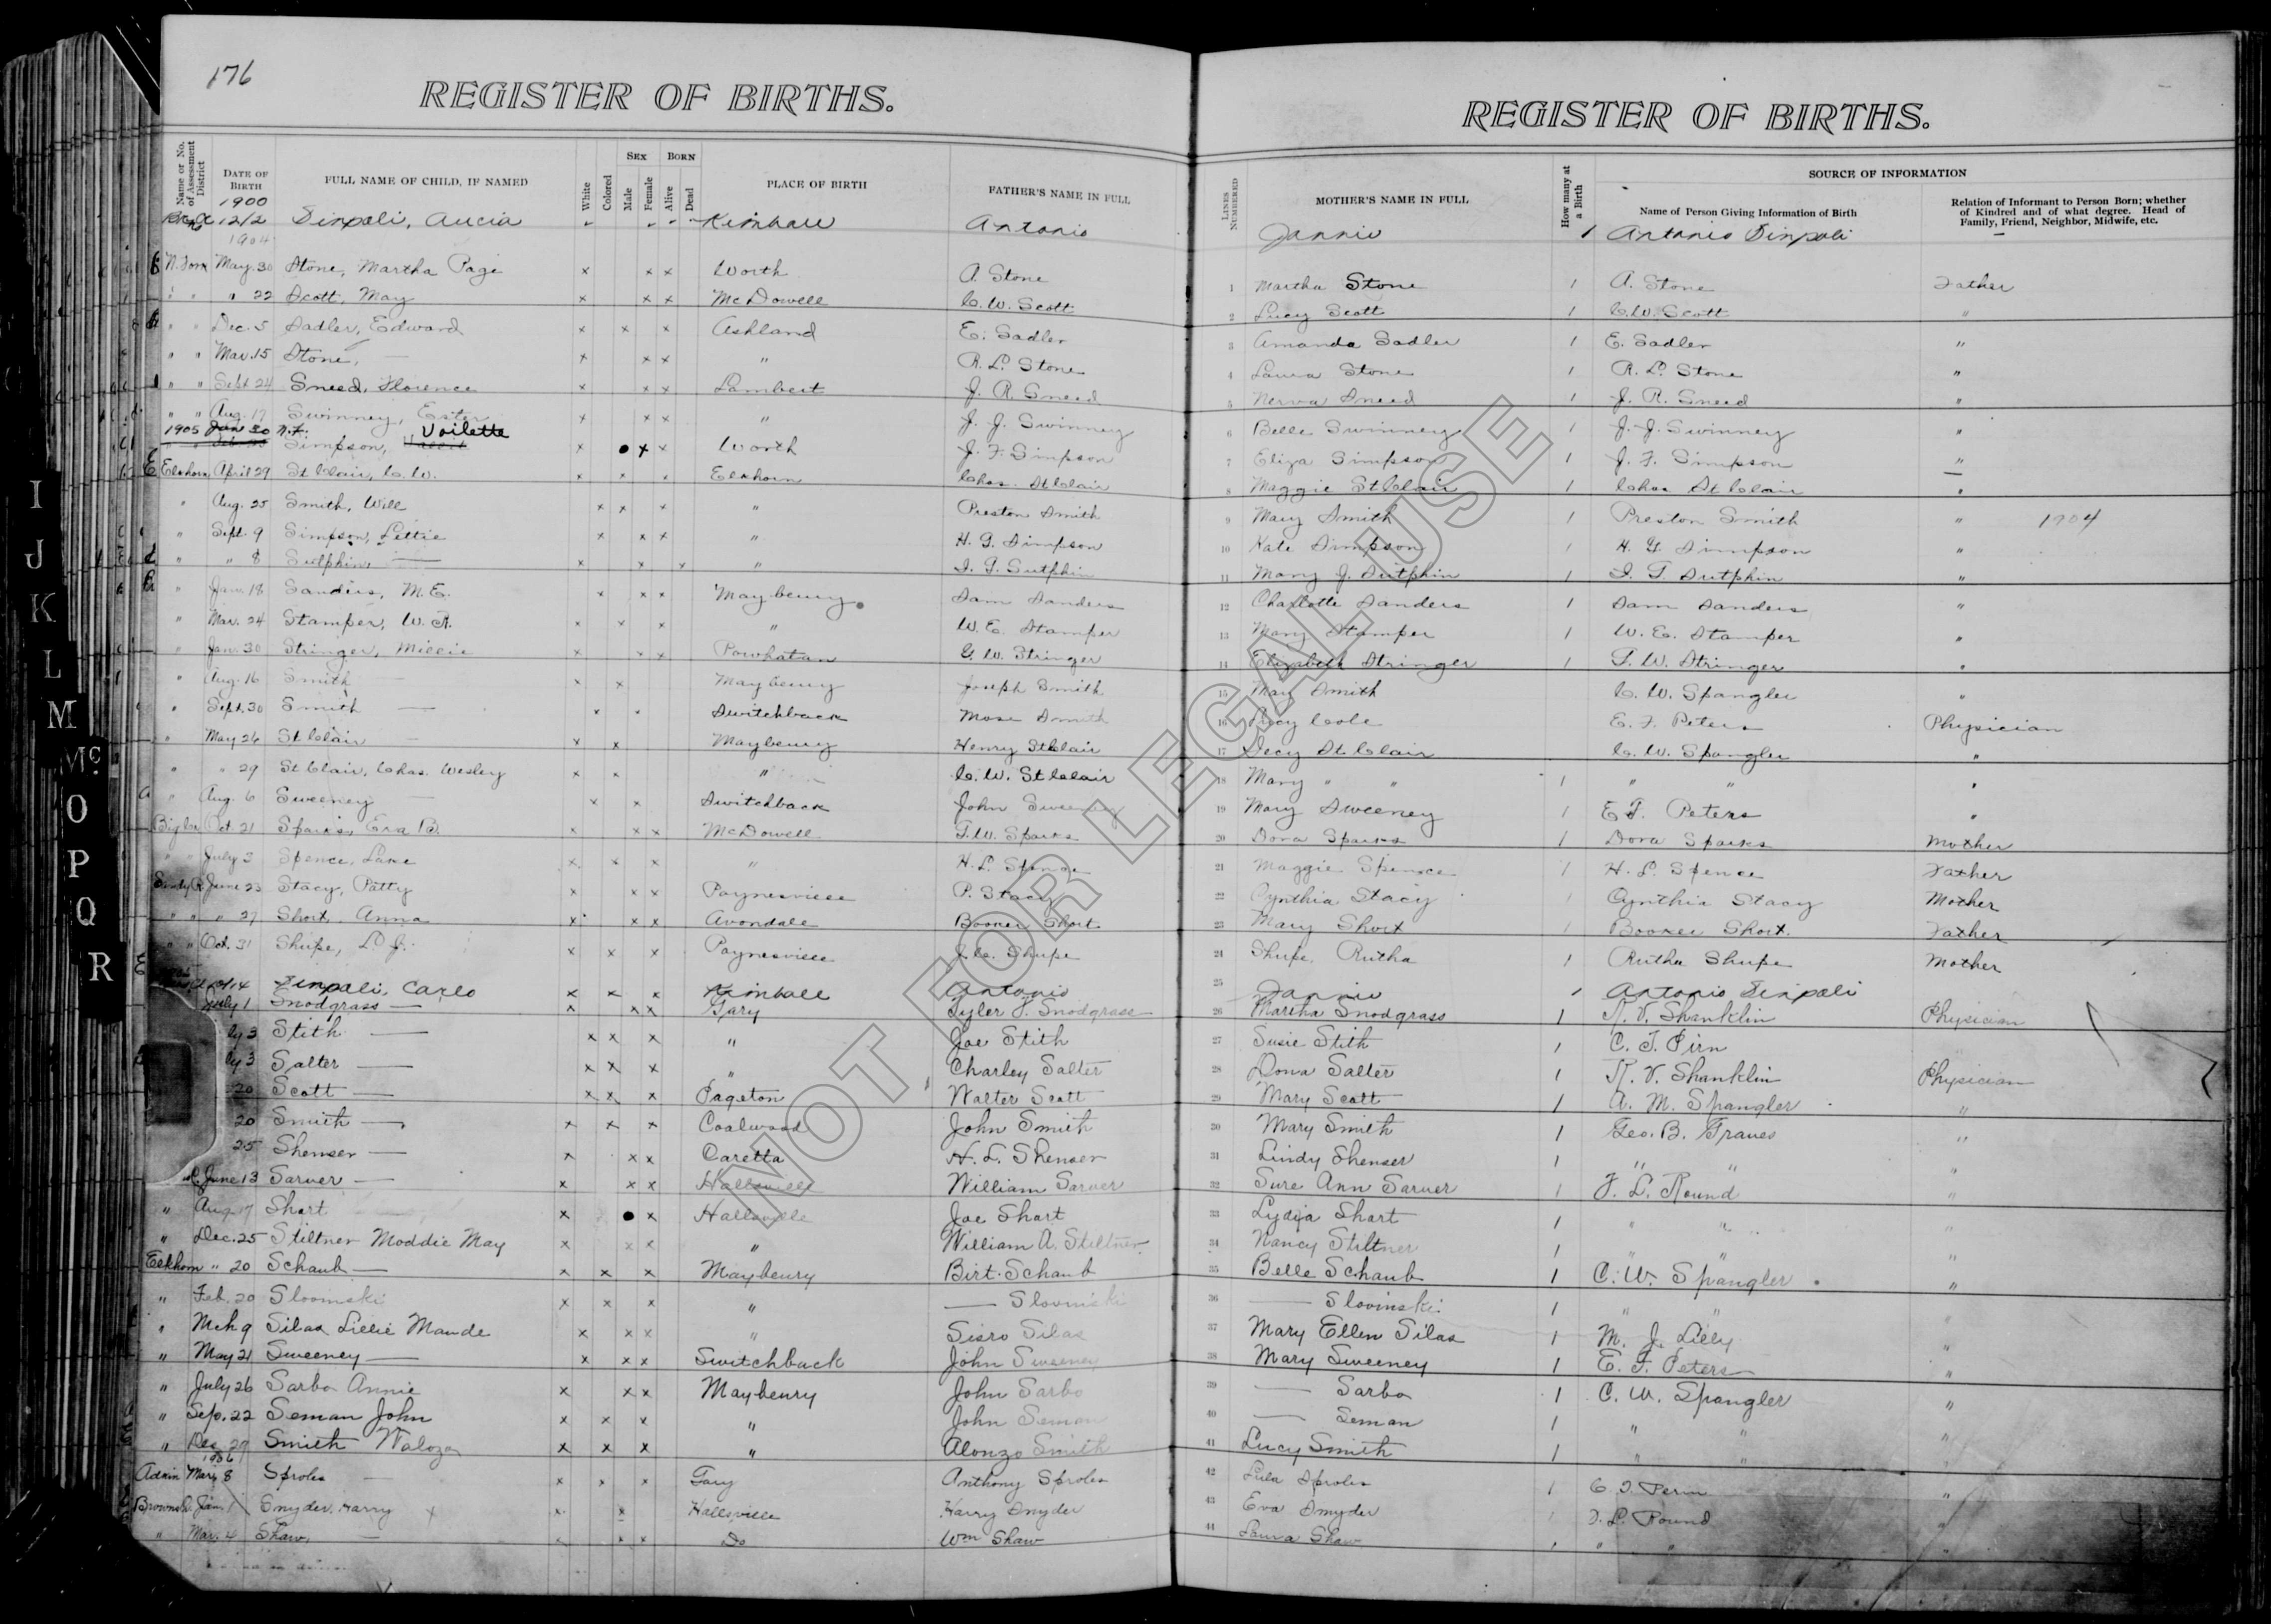 176
REGISTER OF BIRTHS.
REGISTER OF BIRTHS.
Name or No. of Assessment District
DATE OF BIRTH
FULL NAME OF CHILD, IF NAMED
White
Colored
SEX
Male
Female
BORN
Alive
Dead
PLACE OF BIRTH
FATHER'S NAME IN FULL
LINES NUMBERED
MOTHER'S NAME IN FULL
How many at a Birth
SOURCE OF INFORMATION
Name of Person Giving Information of Birth
Relation of Informant to Person Born; whether of Kindred and of what degree. Head of Family, Friend, Neighbor, Midwife, etc.
1900
12/2 Sinpoli, Aucia Kimball Antonio Jannie 1 Antonio Sinpoli —
1904
N. Fork May 30 Stone, Martha Page x x x Worth A. Stone 1 Martha Stone 1 A. Stone Father
" " " 22 Scott, May x x x McDowell C. W. Scott 2 Lucy Scott 1 C. W. Scott "
" " Dec. 5 Sadler, Edward x x x Ashland E. Sadler 3 Amanda Sadler 1 E. Sadler "
" " Mar. 15 Stone, — x x x " R. L. Stone 4 Laura Stone 1 R. L. Stone "
" " Sept 24 Sneed, Florence x x x Lambert J. R. Sneed 5 Nerva Sneed 1 J. R. Sneed "
" " Aug. 17 Swinney, Ester x x x " J. J. Swinney 6 Belle Swinney 1 J. J. Swinney "
1905 Jan 30 N.F. Simpson, Voilette x x x Worth J. F. Simpson 7 Eliza Simpson 1 J. F. Simpson "
Elkhorn April 29 St Clair, C. W. x x x Elkhorn Chas. St Clair 8 Maggie St Clair 1 Chas St Clair "
" Aug. 25 Smith, Will x x x " Preston Smith 9 Mary Smith 1 Preston Smith " 1904
" Sept. 9 Simpson, Lettie x x x " H. G. Simpson 10 Kate Simpson 1 H. G. Simpson "
" " 8 Sutphin, — x x x " I. T. Sutphin 11 Mary J. Sutphin 1 I. T. Sutphin "
" Jan. 18 Sanders, M. E. x x x Maybeury Sam Sanders 12 Charlotte Sanders 1 Sam Sanders "
" Mar. 24 Stamper, W. R. x x x " W. E. Stamper 13 Mary Stamper 1 W. E. Stamper "
" Jan. 30 Stringer, Millie x x x Powhatan G. W. Stringer 14 Elizabeth Stringer 1 G. W. Stringer "
" Aug. 16 Smith — x x Maybeury Joseph Smith 15 May Smith C. W. Spangler "
" Sept. 30 Smith — x x Switchback Mose Smith 16 Cole E. F. Peters Physician
" May 26 St Clair — x x Maybeury Henry St Clair 17 Decy St Clair C. W. Spangler "
" " 29 St Clair, Chas. Wesley x x " C. W. St Clair 18 Mary " " 1 " " "
" Aug. 6 Sweeney — x x Switchback John Sweeney 19 Mary Sweeney 1 E F. Peters "
Big Cr Oct. 21 Sparks, Era B. x x x McDowell T. W. Sparks 20 Dora Sparks 1 Dora Sparks Mother
" " July 3 Spence, Lake x x x " H. L. Spence 21 Maggie Spence 1 H. L. Spence Father
Sandy R June 23 Stacy, Patty x x x Paynesville P. Stacy 22 Cynthia Stacy 1 Cynthia Stacy Mother
" " " 27 Short, Anna x x x Avondale Booner Short 23 Mary Short 1 Booner Short. Father
" " Oct. 31 Shupe, L. J. x x x Paynesville J. C. Shupe 24 Shupe, Rutha 1 Rutha Shupe Mother
Sinpoli, Carlo x x x Kimball Antonio 25 Jannie 1 Antonio Sinpoli
July 1 Snodgrass — x x x Gary Tyler T. Snodgrass 26 Martha Snodgrass 1 R. V. Shanklin Physician
ly 3 Stith — x x x " Joe Stith 27 Susie Stith 1 C. T. Pirn
ly 3 Salter — x x x " Charley Salter 28 Dona Salter 1 R. V. Shanklin Physician
20 Scott — x x x Pageton Walter Scott 29 Mary Scott 1 A. M. Spangler "
20 Smith — x x x Coalwood John Smith 30 Mary Smith 1 Geo. B. Graves "
25 Shenser — x x x Caretta H. L. Shenser 31 Lindy Shenser 1 " " "
June 13 Sarver — x x x Hallsville William Sarver 32 Sure Ann Sarver 1 F. L. Round "
" Aug. 17 Short x x Hallsville Joe Short 33 Lydia Short 1 " " "
" Dec. 25 Stiltner Moddie May x x x " William A. Stiltner 34 Nancy Stiltner 1 " " "
Elkhorn " 20 Schaub — x x x Maybeury Birt. Schaub 35 Belle Schaub 1 C. W. Spangler "
" Feb. 20 Slovinski x x x " — Slovinski 36 — Slovinski 1 " " "
" Mch 9 Silas Lillie Maude x x x " Sisro Silas 37 Mary Ellen Silas 1 M. J. Lilly "
" May 21 Sweeney — x x x Switchback John Sweeney 38 Mary Sweeney 1 E. F. Peters "
" July 26 Sarbo Annie x x x Maybeury John Sarbo 39 — Sarbo 1 C. W. Spangler "
" Sep. 22 Seman John x x x " John Seman 40 — Seman 1 " " "
" Dec 29 Smith Waloza x x x " Alonzo Smith 41 Lucy Smith 1 " " "
1906
Adkin Mar. 8 Sproles — x x x Gary Anthony Sproles 42 Lula Sproles 1 C. T. Perrn "
Jan. 1 Snyder, Harry x x Hallsville Harry Snyder 43 Eva Snyder 1 F. L. Round "
" Mar. 4 Shaw, — x x x Do Wm Shaw 44 Laura Shaw 1 " " "
NOT FOR LEGAL USE
I
J
K
L
M
Mc
O
P
Q
R